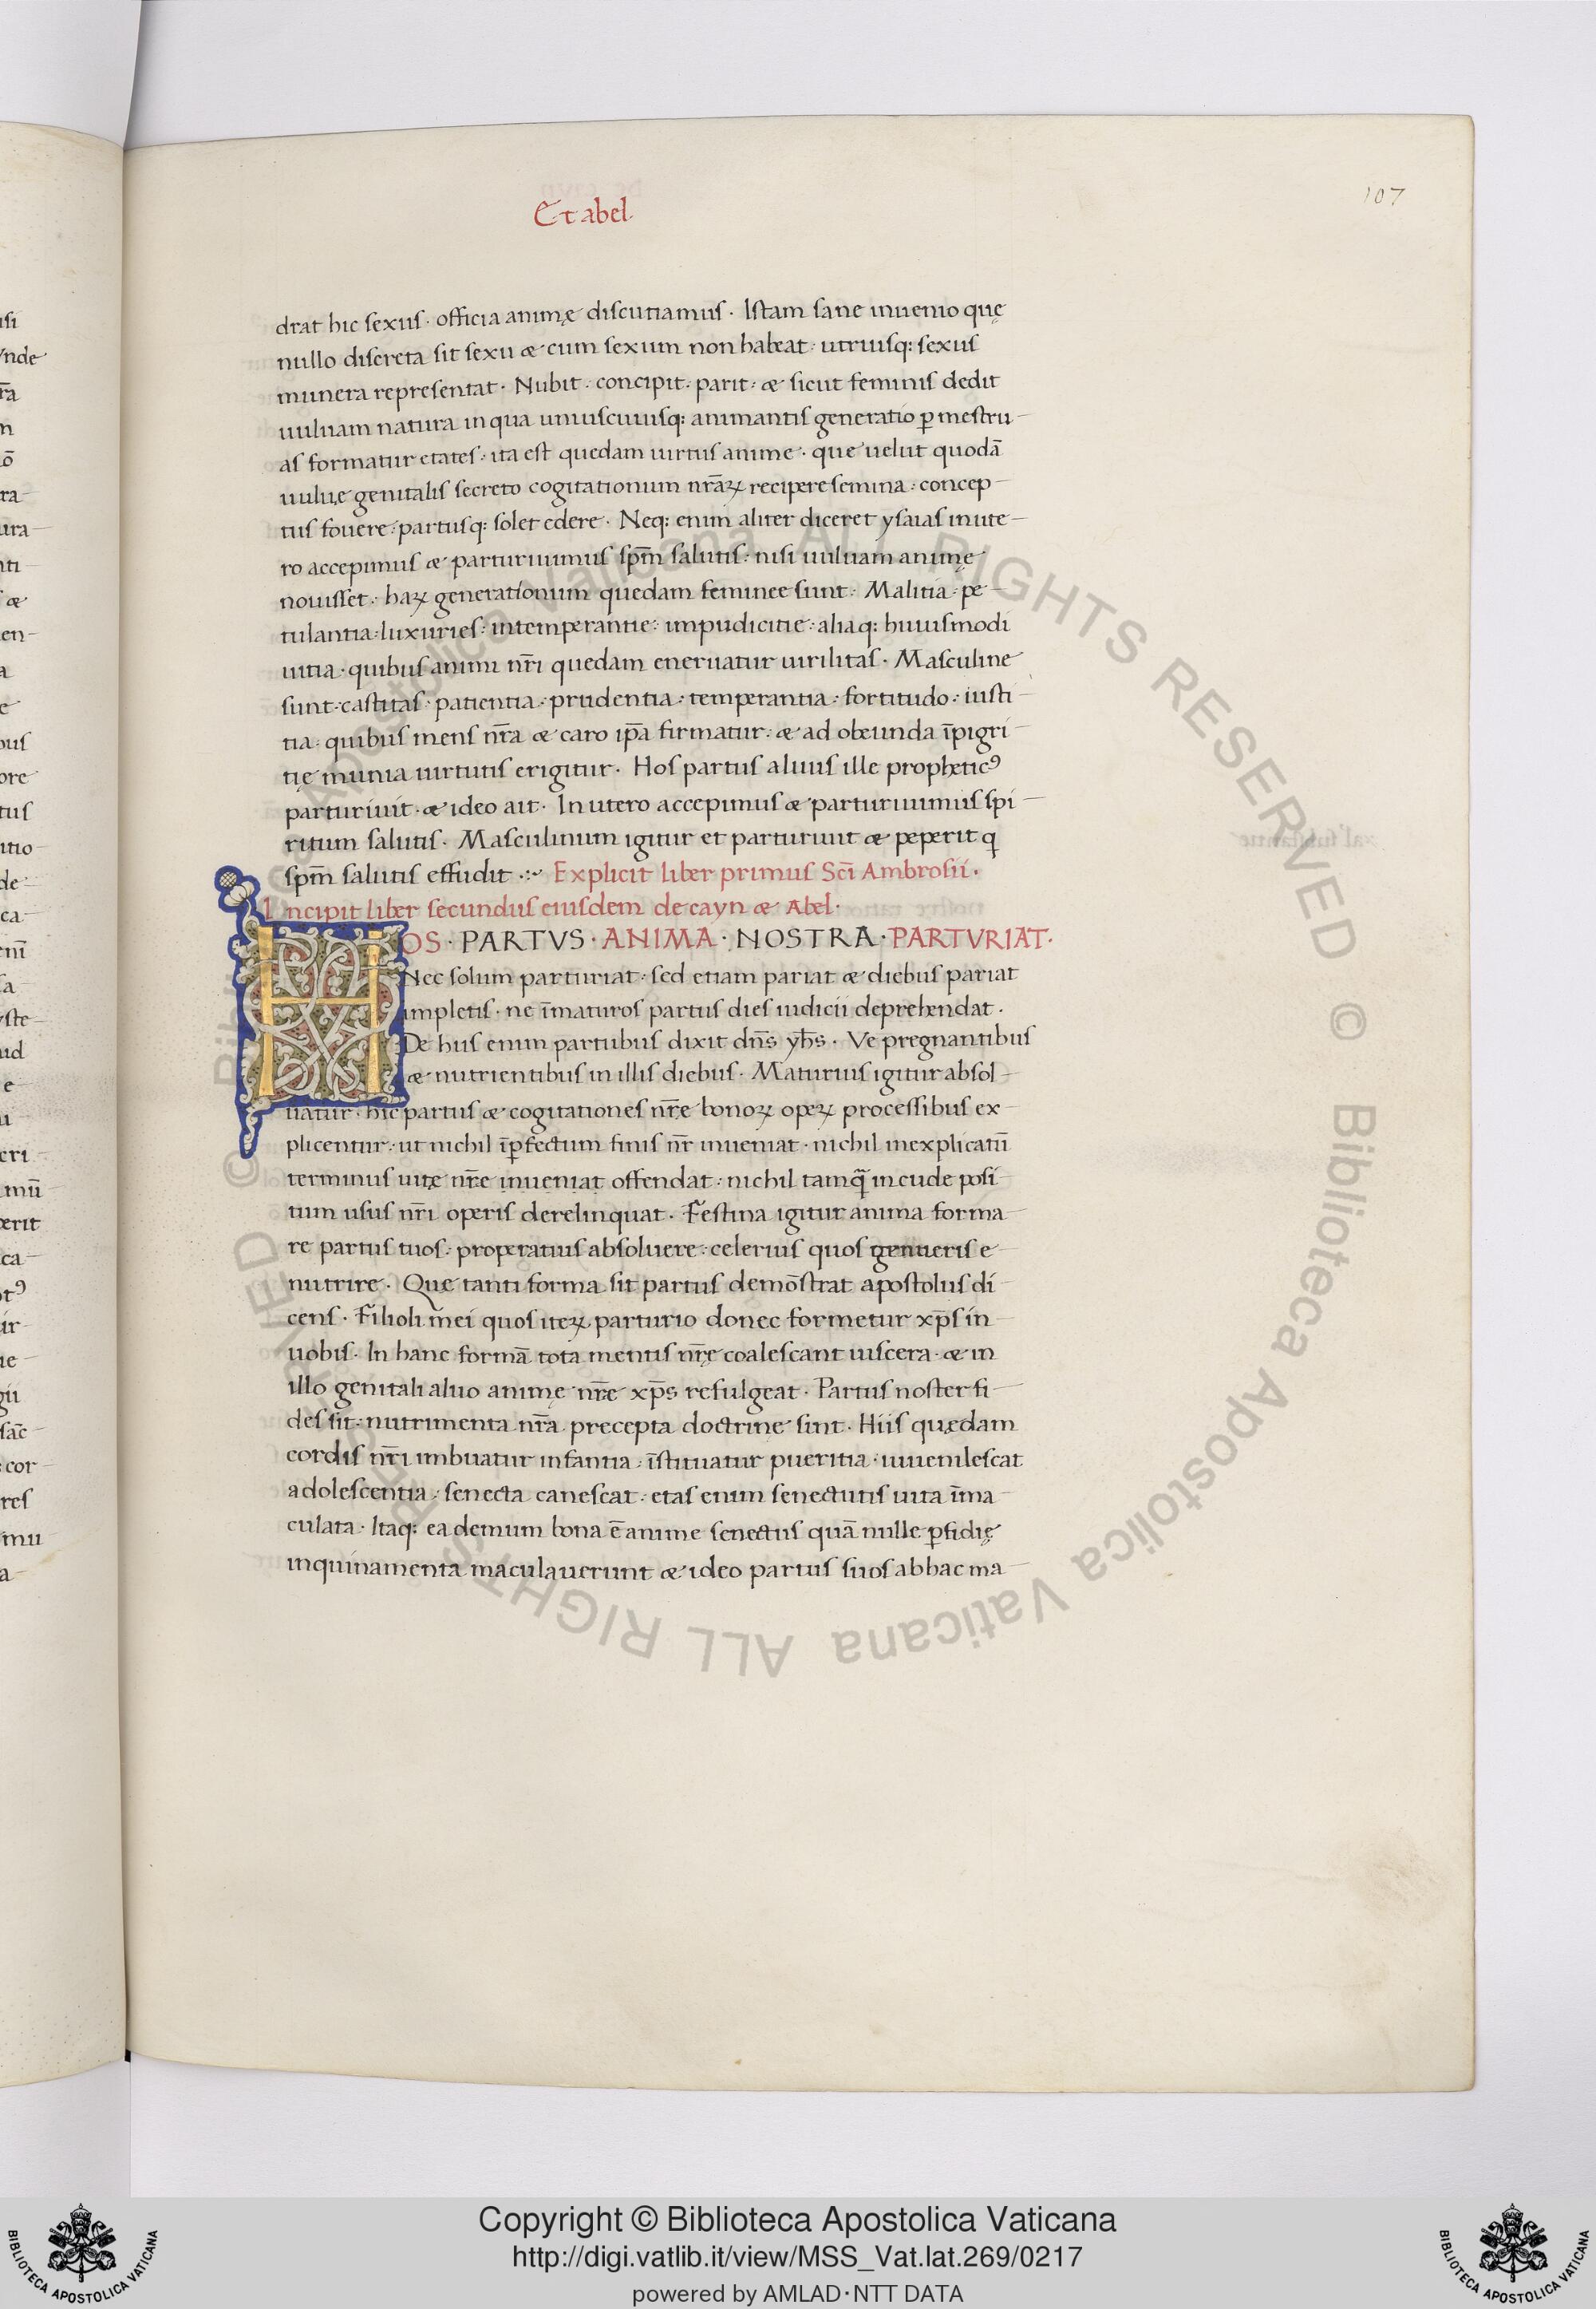 Et abel.
107
drat hic sexus · officia animę discutiamus · Istam sane inuenio quę
nullo discreta sit sexu & cum sexum non habeat : utriusq: sexus
munera representat · Nubit : concipit : parit : & sicut feminis dedit
uuluam natura in qua uniuscuiusq: animantis generatio ꝑ mestru-
as formatur etates : ita est quedam uirtus anime · que uelut quodā
uulue genitalis secreto cogitationum nr̄aꝝ recipere semina : concep-
tus fouere : partusq: solet edere · Neq: enim aliter diceret ysaias in ute-
ro accepimus & parturiuimus sp̄m salutis : nisi uuluam animę
nouisset : haꝝ generationum quedam feminee sunt : Malitia : pe-
tulantia : luxuries : intemperantie : impudicitie : aliaq: huiusmodi
uitia · quibus animi nr̄i quedam eneruatur uirilitas · Masculine
sunt · castitas : patientia : prudentia : temperantia : fortitudo : iusti-
tia : quibus mens nr̄a & caro ip̄a firmatur : & ad obeunda īpigri-
tię munia uirtutis erigitur · Hos partus aluus ille propheticꝰ
parturiuit · & ideo ait · In utero accepimus & parturiuimus spi-
ritum salutis · Masculinum igitur et parturiuit & peperit q
sp̄m salutis effudit ·:~ Explicit liber primus Sc̄i Ambrosii ·
Incipit liber secundus eiusdem de cayn & Abel ·
HOS · PARTVS · ANIMA · NOSTRA · PARTVRIAT ·
Nec solum parturiat · sed etiam pariat & diebus pariat
impletis · ne īmaturos partus dies iudicii deprehendat ·
De hiis enim partubus dixit dn̄s yh̄s · Ve pregnantibus
& nutrientibus in illis diebus · Maturius igitur absol-
uatur · hic partus & cogitationes nr̄e bonoꝝ opeꝝ processibus ex-
plicentur : ut nichil īꝑfectum finis nr̄ inueniat · nichil inexplicatū
terminus uitę nr̄e inueniat offendat : nichil tamq̄ incude posi-
tum usus nr̄i operis derelinquat · Festina igitur anima forma-
re partus tuos : properatius absoluere : celerius quos genueris e-
nutrire · Que tanti forma sit partus demōstrat apostolus di-
cens · Filioli mei quos iteꝝ parturio donec formetur xp̄s in
uobis · In hanc formā tota mentis nr̄ę coalescant uiscera · & in
illo genitali aluo animę nr̄e xp̄s refulgeat · Partus noster fi-
des sit · nutrimenta nr̄a precepta doctrine sint · Hiis quędam
cordis nr̄i imbuatur infantia : īstituatur pueritia · iuuenilescat
adolescentia : senecta canescat : etas enim senectutis uita īma-
culata · Itaq: ea demum bona ē anime senectus quā nulle ꝑfidię
inquinamenta maculauerunt & ideo partus suos ab hac ma-
Copyright © Biblioteca Apostolica Vaticana
http://digi.vatlib.it/view/MSS_Vat.lat.269/0217
powered by AMLAD·NTT DATA